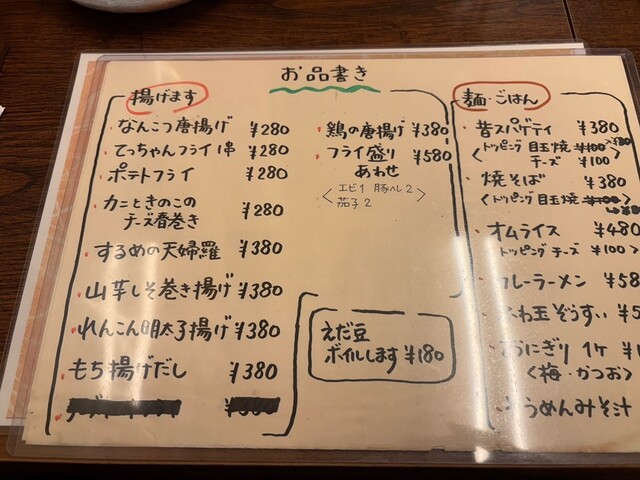 お品書き
揚げます
・なんこつ唐揚げ ¥280
・てっちゃんフライ1串 ¥280
・ポテトフライ ¥280
・カニときのこの
チーズ春巻き ¥280
・するめの天婦羅 ¥380
・山芋しそ巻き揚げ ¥380
・れんこん明太子揚げ ¥380
・もち揚げだし ¥380
・鶏の唐揚げ ¥380
・フライ盛り ¥580
あわせ
〈エビ1 豚ヘレ2
茄子2〉
えだ豆
ボイルします ¥180
麺・ごはん
・昔スパゲティ ¥380
〈トッピング 目玉焼 ¥100
チーズ ¥100〉
・焼そば ¥380
〈トッピング 目玉焼 ¥100〉
・オムライス ¥480
トッピング チーズ ¥100〉
カレーラーメン
ぞうすい
おにぎり 1ケ
〈梅・かつお〉
うめんみそ汁